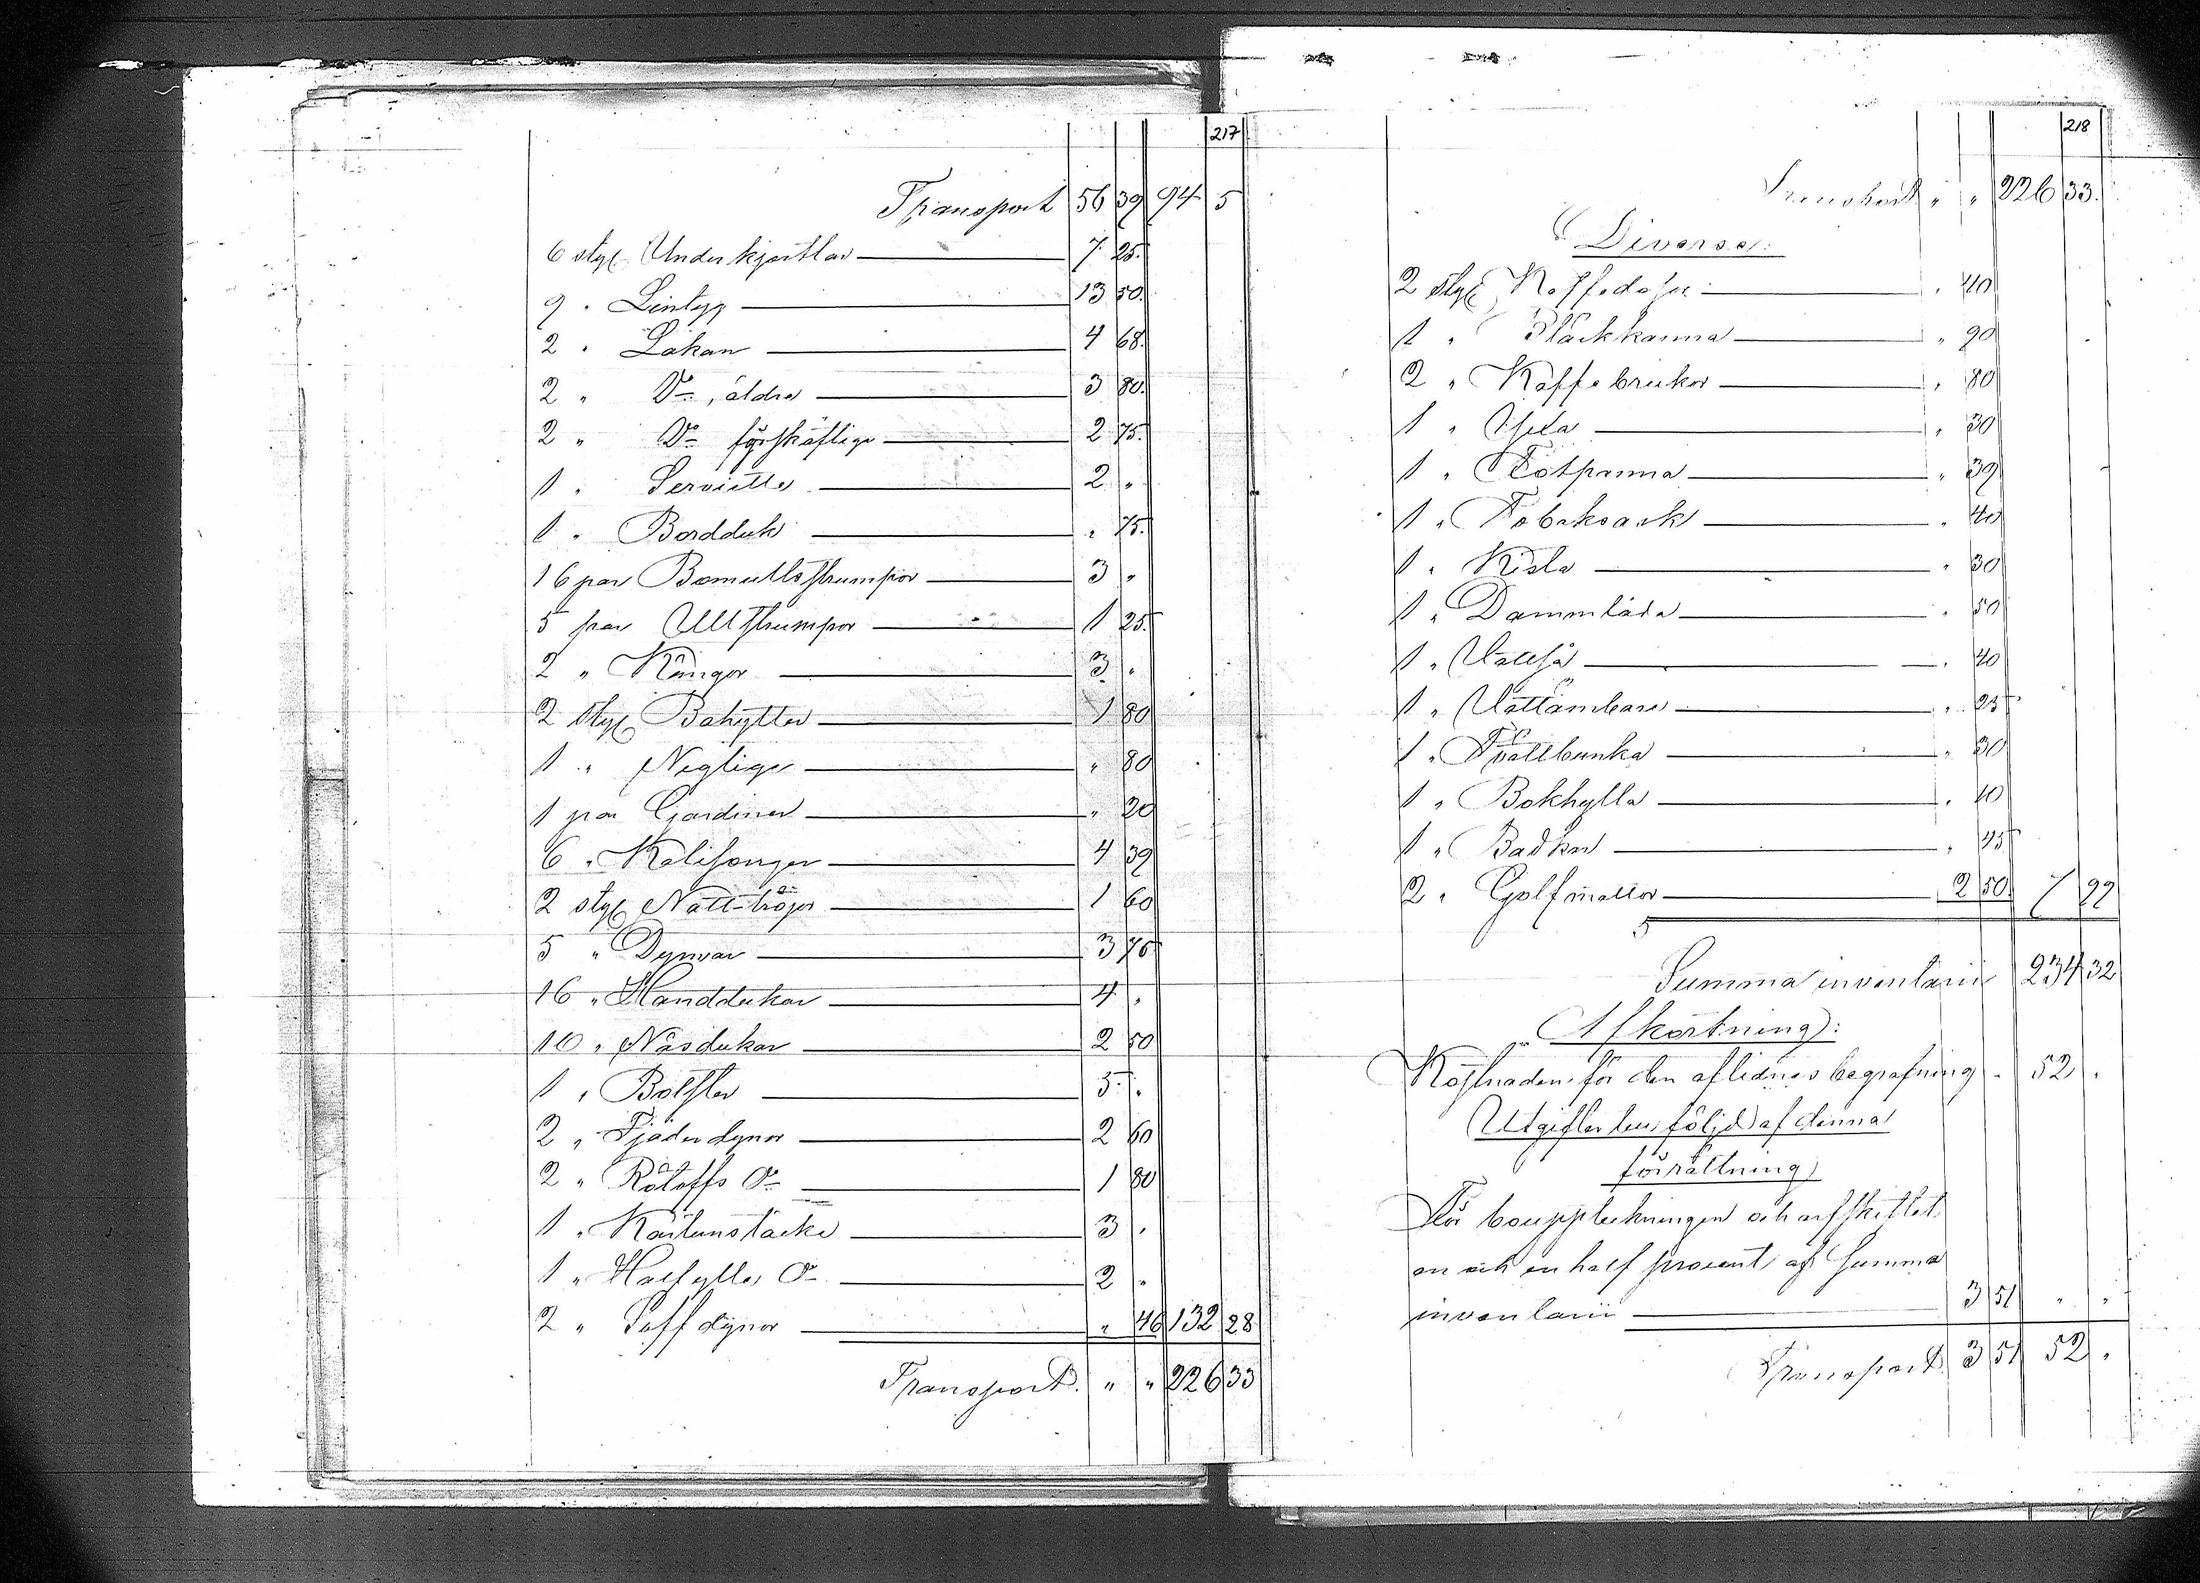 217
Transport 56 39 94 5
6 styck Underkjortlar 7 25
9 " Lintyg 13 50
2 " Lakan 4 68
2 " D:o, äldre 3 80
2 " D:o fyrskäftiga 2 75
1 " Serviette 2 "
1 " Bordduk " 75
16 par Bomullsstrumpor 3 "
5 par Ullstrumpor 1 25
2 " Kängor 3 "
2 styck Bahytter 1 80
1 " Neglige " 80
1 par Gardiner " 20
6 " Kalisonger 4 39
2 styck Natt-tröjor 1 60
5 " Dynvar 3 75
16 " Handdukar 4 "
10 " Näsdukar 2 50
1 " Bolster 5 "
2 " Fjäderdynor 2 60
2 " D:o 1 80
1 " Kartunstäcke 3 "
1 " Halfylle D:o 2 "
2 " Soffdynor " 46 132 28
Transport " " 226 33
218
Transport " " 226 33
Diverse:
2 styck Kaffedosor " 40
1 " Bläckkanna " 90
2 " Kaffebrickor " 80
1 " " 30
1 " " 39
1 " Tobaksask " 40
1 " Kista " 30
1 " Dammlåda " 50
1 " " 40
1 " Vattämbare " 25
1 " Tvättbunka " 30
1 " Bokhylla " 10
1 " Badkar " 45
2 " Golfmattor 2 50 7 99
Summa inventarii 234 32
Afkortning:
Kostnaden för den aflidnes begrafning " 52 "
Utgifter till följd af denna
förrättning
För bouppteckningen och arfskiftet
en och en half procent af Summa
inventarii 3 51 " "
Transport 3 51 52 "